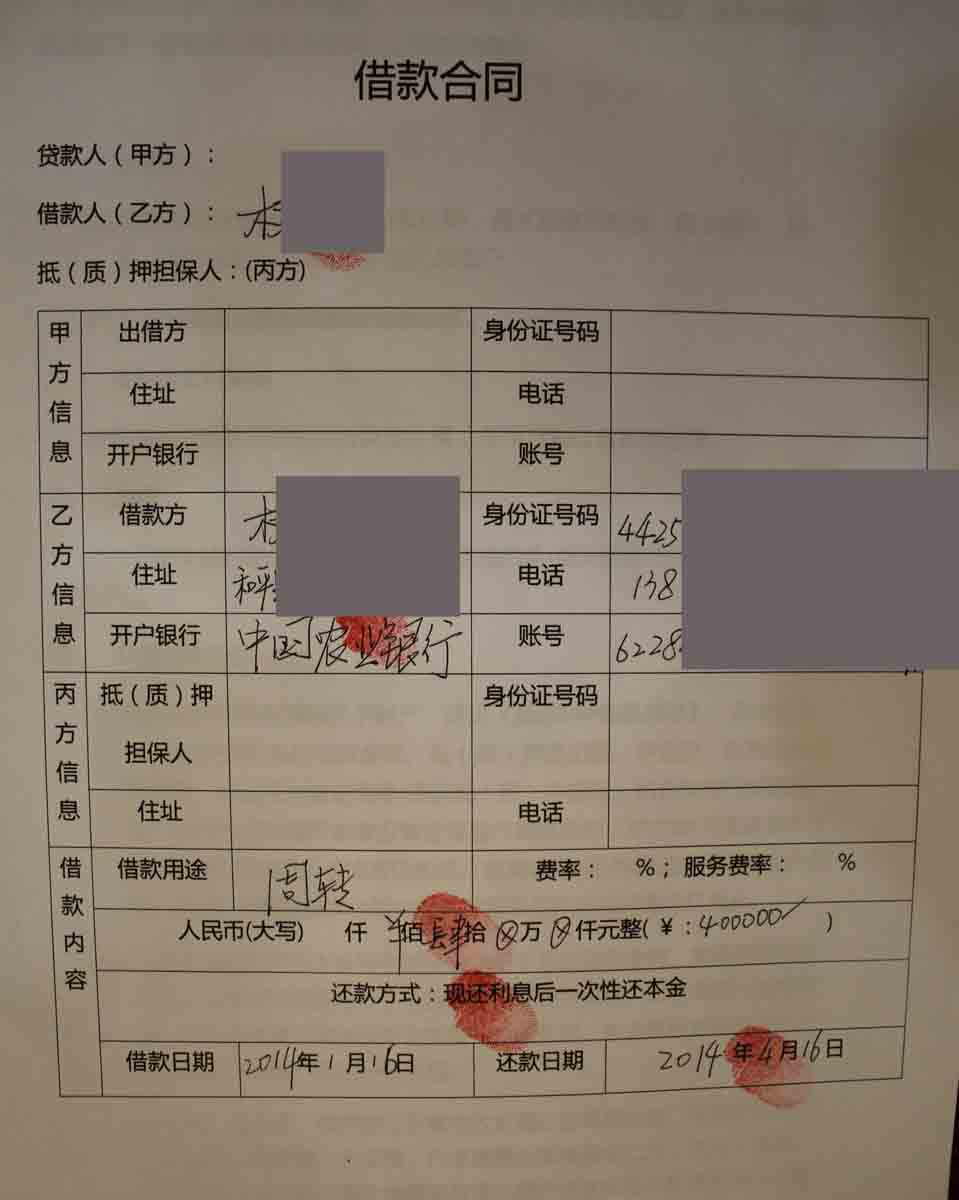 借款合同
贷款人（甲方）：
借款人（乙方）：
抵（质）押担保人：(丙方)
甲方信息
出借方 身份证号码
住址 电话
开户银行 账号
乙方信息
借款方 身份证号码 4425
住址 电话 138
开户银行 中国农业银行 账号 6228
丙方信息
抵（质）押担保人 身份证号码
住址 电话
借款内容
借款用途 周转 费率： %；服务费率： %
人民币(大写) 仟 佰肆拾 万 仟元整(￥:400000 )
还款方式：现还利息后一次性还本金
借款日期 2014年1月16日 还款日期 2014年4月16日